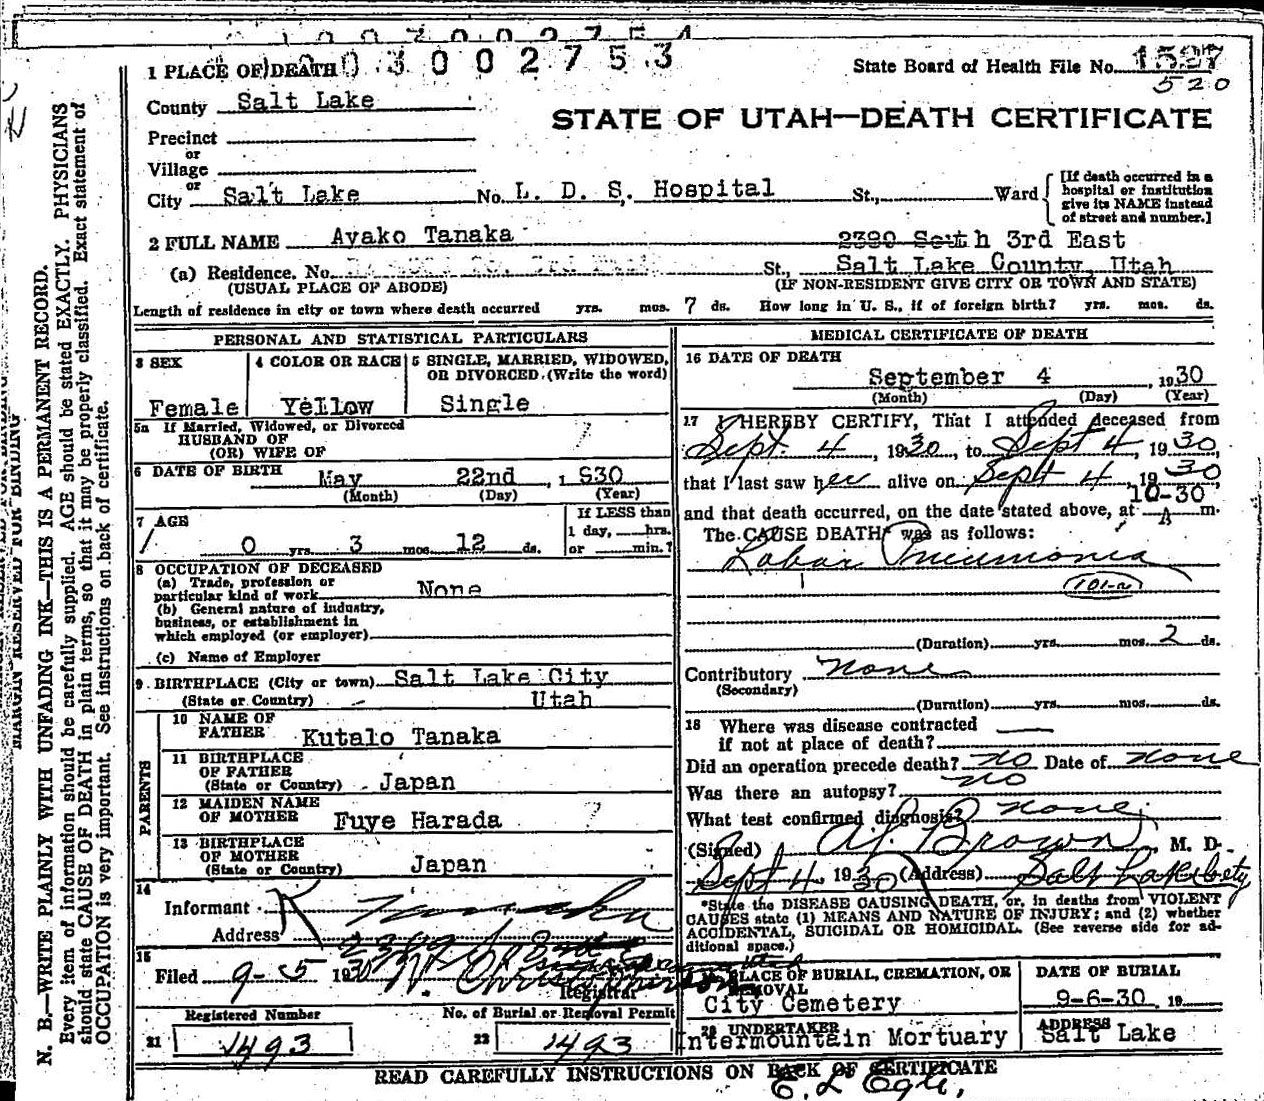 003002753
1 PLACE OF DEATH
State Board of Health File No. 1527
520
County Salt Lake
STATE OF UTAH—DEATH CERTIFICATE
Precinct
or
Village
or
City Salt Lake No. L. D. S. Hospital St., Ward
[If death occurred in a hospital or institution give its NAME instead of street and number.]
2 FULL NAME Ayako Tanaka
South 3rd East
(a) Residence. No. St., Salt Lake County, Utah
(USUAL PLACE OF ABODE) (IF NON-RESIDENT GIVE CITY OR TOWN AND STATE)
Length of residence in city or town where death occurred yrs. mos. 7 ds. How long in U. S., if of foreign birth? yrs. mos. ds.
PERSONAL AND STATISTICAL PARTICULARS
3 SEX
Female
4 COLOR OR RACE
Yellow
5 SINGLE, MARRIED, WIDOWED,
OR DIVORCED. (Write the word)
Single
5a If Married, Widowed, or Divorced
HUSBAND OF
(OR) WIFE OF
6 DATE OF BIRTH May 22nd, 1930
(Month) (Day) (Year)
7 AGE
0 yrs. 3 mos. 12 ds.
If LESS than
1 day, hrs.
or min.?
8 OCCUPATION OF DECEASED
(a) Trade, profession or
particular kind of work None
(b) General nature of industry,
business, or establishment in
which employed (or employer)
(c) Name of Employer
9 BIRTHPLACE (City or town) Salt Lake City
(State or Country) Utah
PARENTS
10 NAME OF
FATHER Kutalo Tanaka
11 BIRTHPLACE
OF FATHER
(State or Country) Japan
12 MAIDEN NAME
OF MOTHER Fuye Harada
13 BIRTHPLACE
OF MOTHER
(State or Country) Japan
14
Informant K Tanaka
Address
15
Filed 9-5 1930
Registrar
Registered Number
21 1493
No. of Burial or Removal Permit
22 1493
MEDICAL CERTIFICATE OF DEATH
16 DATE OF DEATH
September 4, 1930
(Month) (Day) (Year)
17 I HEREBY CERTIFY, That I attended deceased from
Sept. 4, 1930, to Sept 4, 1930,
that I last saw her alive on Sept 4, 1930
10-30
and that death occurred, on the date stated above, at A m.
The CAUSE DEATH* was as follows:
Lobar Pneumonia
101-a
(Duration) yrs. mos. 2 ds.
Contributory None
(Secondary)
(Duration) yrs. mos. ds.
18 Where was disease contracted
if not at place of death?
Did an operation precede death? no Date of none
Was there an autopsy? no
What test confirmed diagnosis? none
(Signed) Brown, M. D.
Sept 4, 1930 (Address) Salt Lake City
*State the DISEASE CAUSING DEATH, or, in deaths from VIOLENT
CAUSES state (1) MEANS AND NATURE OF INJURY; and (2) whether
ACCIDENTAL, SUICIDAL OR HOMICIDAL. (See reverse side for ad-
ditional space.)
19 PLACE OF BURIAL, CREMATION, OR
REMOVAL
City Cemetery
DATE OF BURIAL
9-6-30 19
20 UNDERTAKER
Intermountain Mortuary
ADDRESS
Salt Lake
READ CAREFULLY INSTRUCTIONS ON BACK OF CERTIFICATE
MARGIN RESERVED FOR BINDING
N. B.—WRITE PLAINLY WITH UNFADING INK—THIS IS A PERMANENT RECORD.
Every item of information should be carefully supplied. AGE should be stated EXACTLY. PHYSICIANS
should state CAUSE OF DEATH in plain terms, so that it may be properly classified. Exact statement of
OCCUPATION is very important. See instructions on back of certificate.